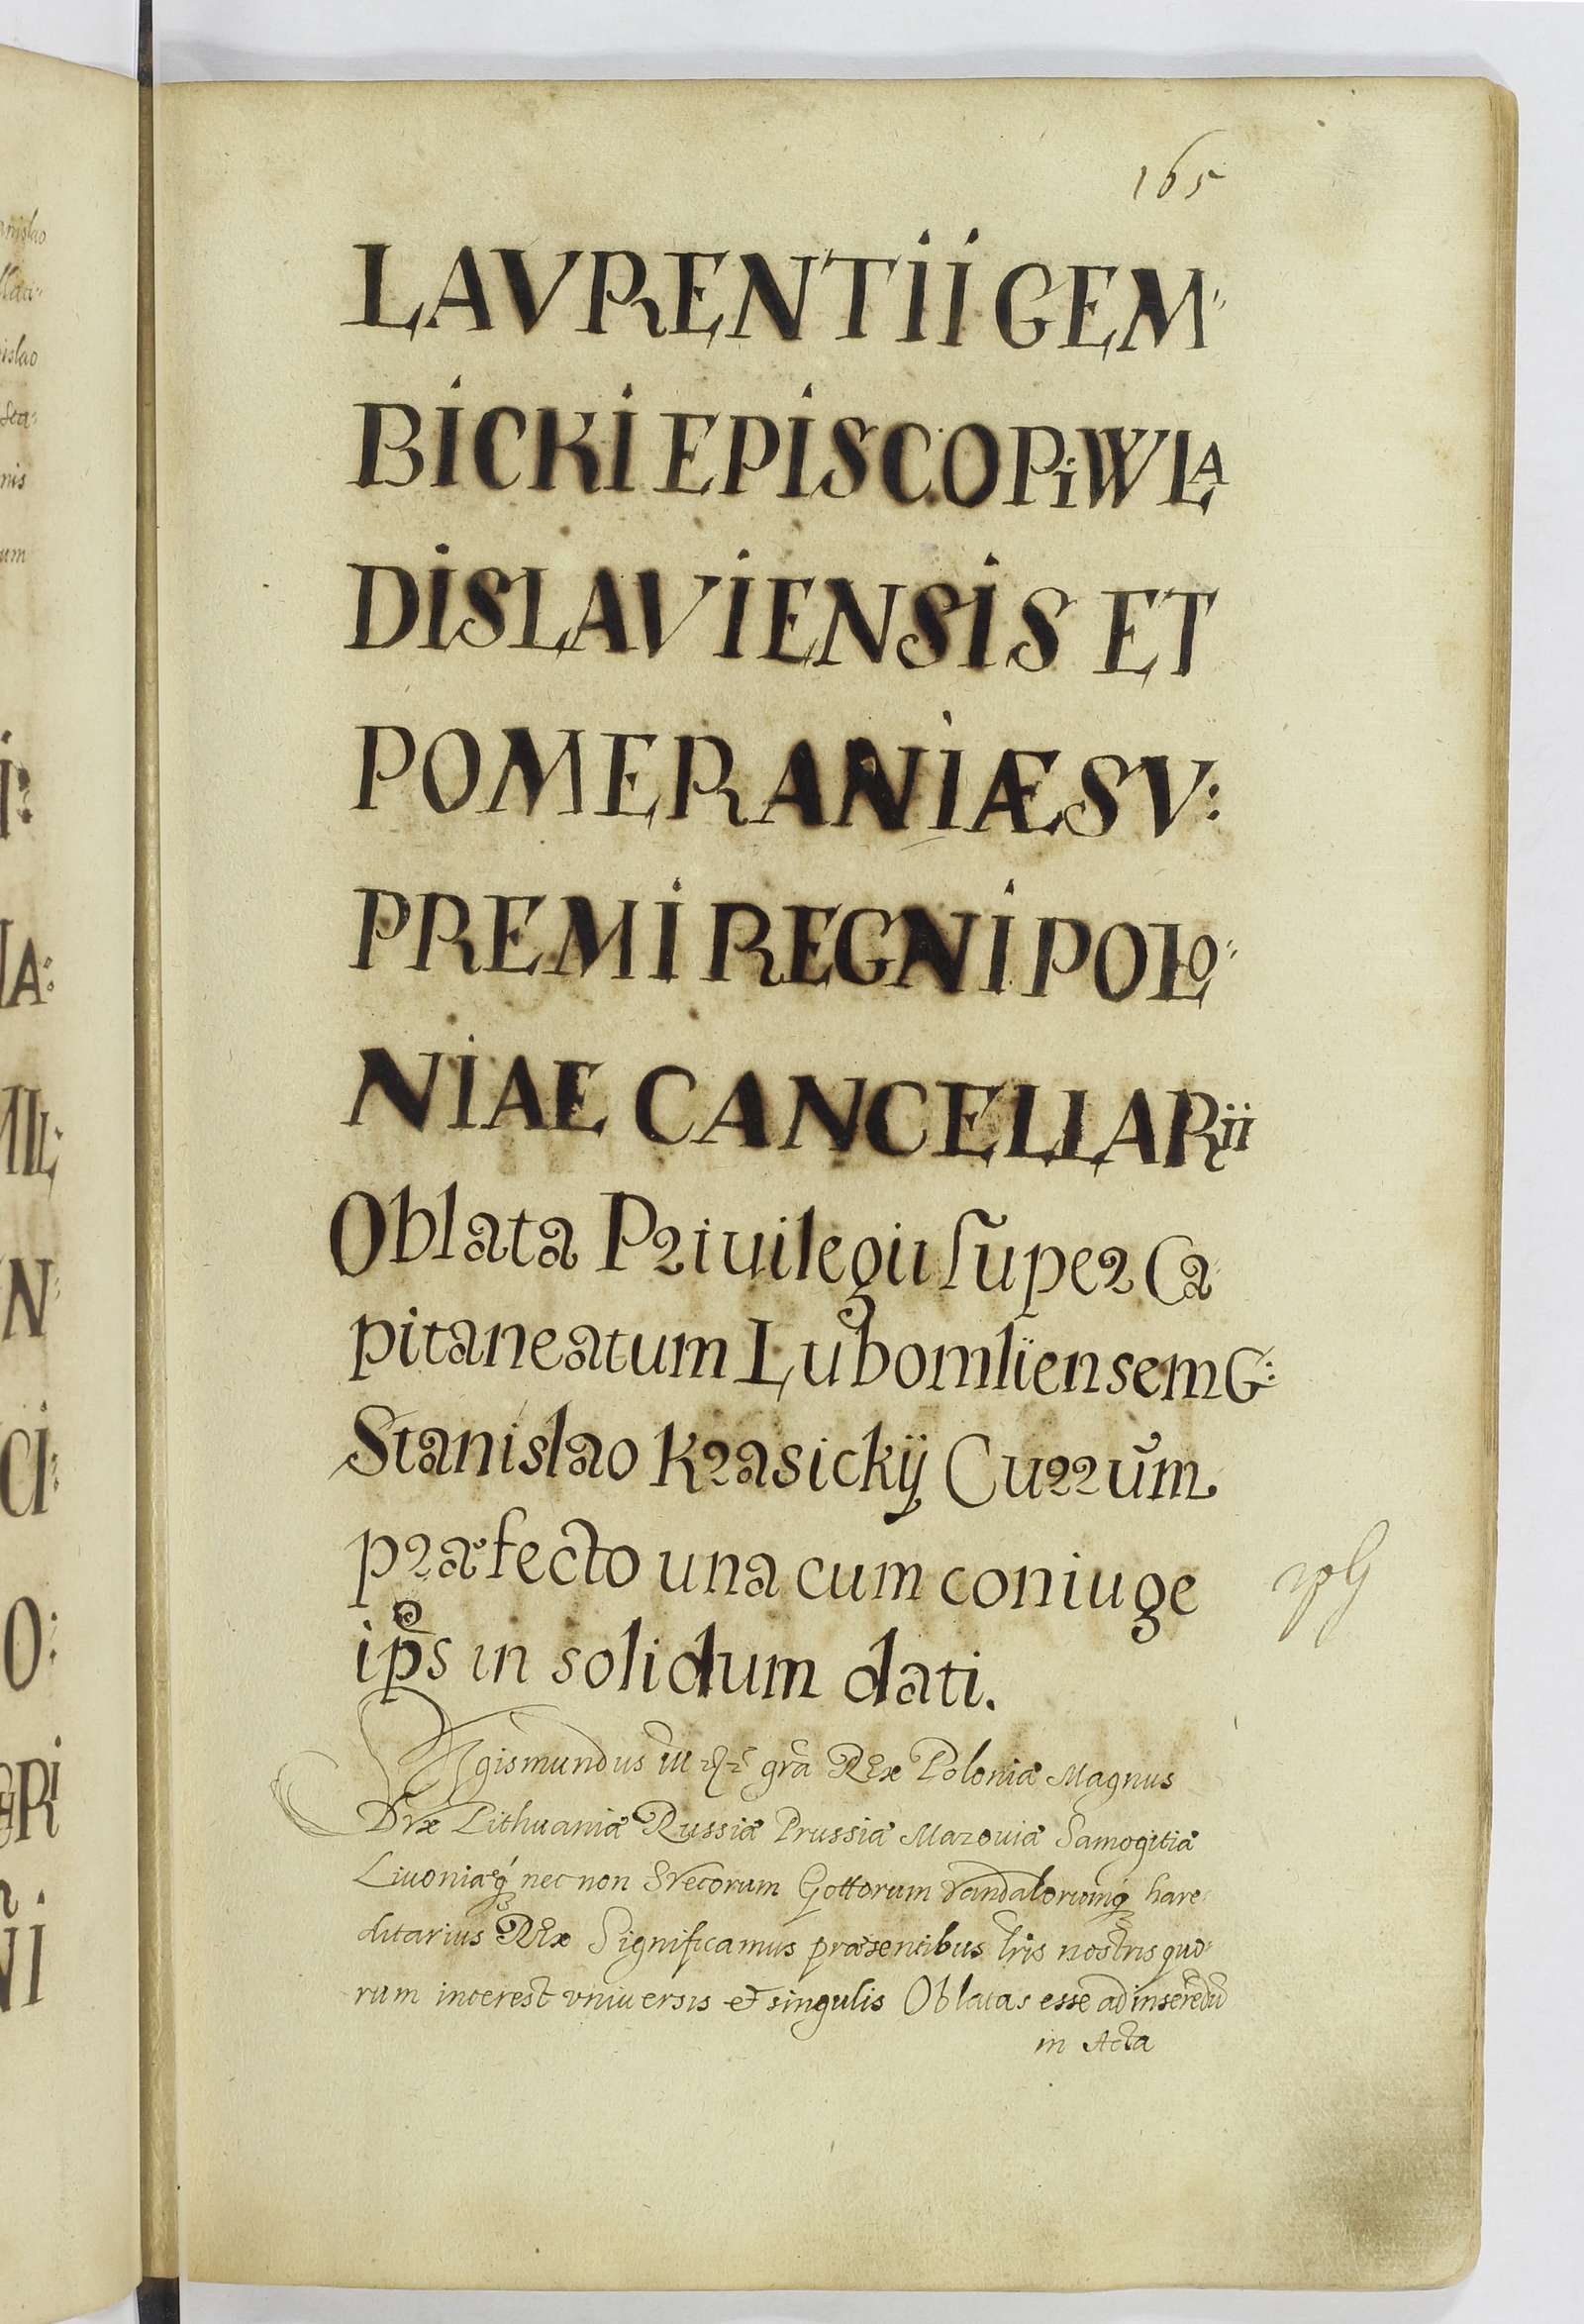 165
LAVRENTII GEM
BICKI EPISCOPI WLA
DISLAVIENSIS ET
POMERANIÆ SV:
PREMI REGNI POLO
NIAE CANCELLARII
Oblata Priuilegii super Ca
pitaneatum Lubomliensem G:
Stanislao Krasickij Currum
præfecto una cum coniuge
ips in solidum dati.
Sigismundus III grã Rex Poloniæ Magnus
Dvx Lithuaniæ Russiæ Prussiæ Mazouiæ Samogitiæ
Liuoniæq́ nec non Svecorum Gottorum Vandalorumq́ hære
ditarius REx Significamus præsentibus lris nostris quo
rum interest vniuersis et singulis Oblatas esse ad inserẽdũ
in Acta
anislao
islao
nis
um
I:
NA:
N
CI:
O:
RI
NI